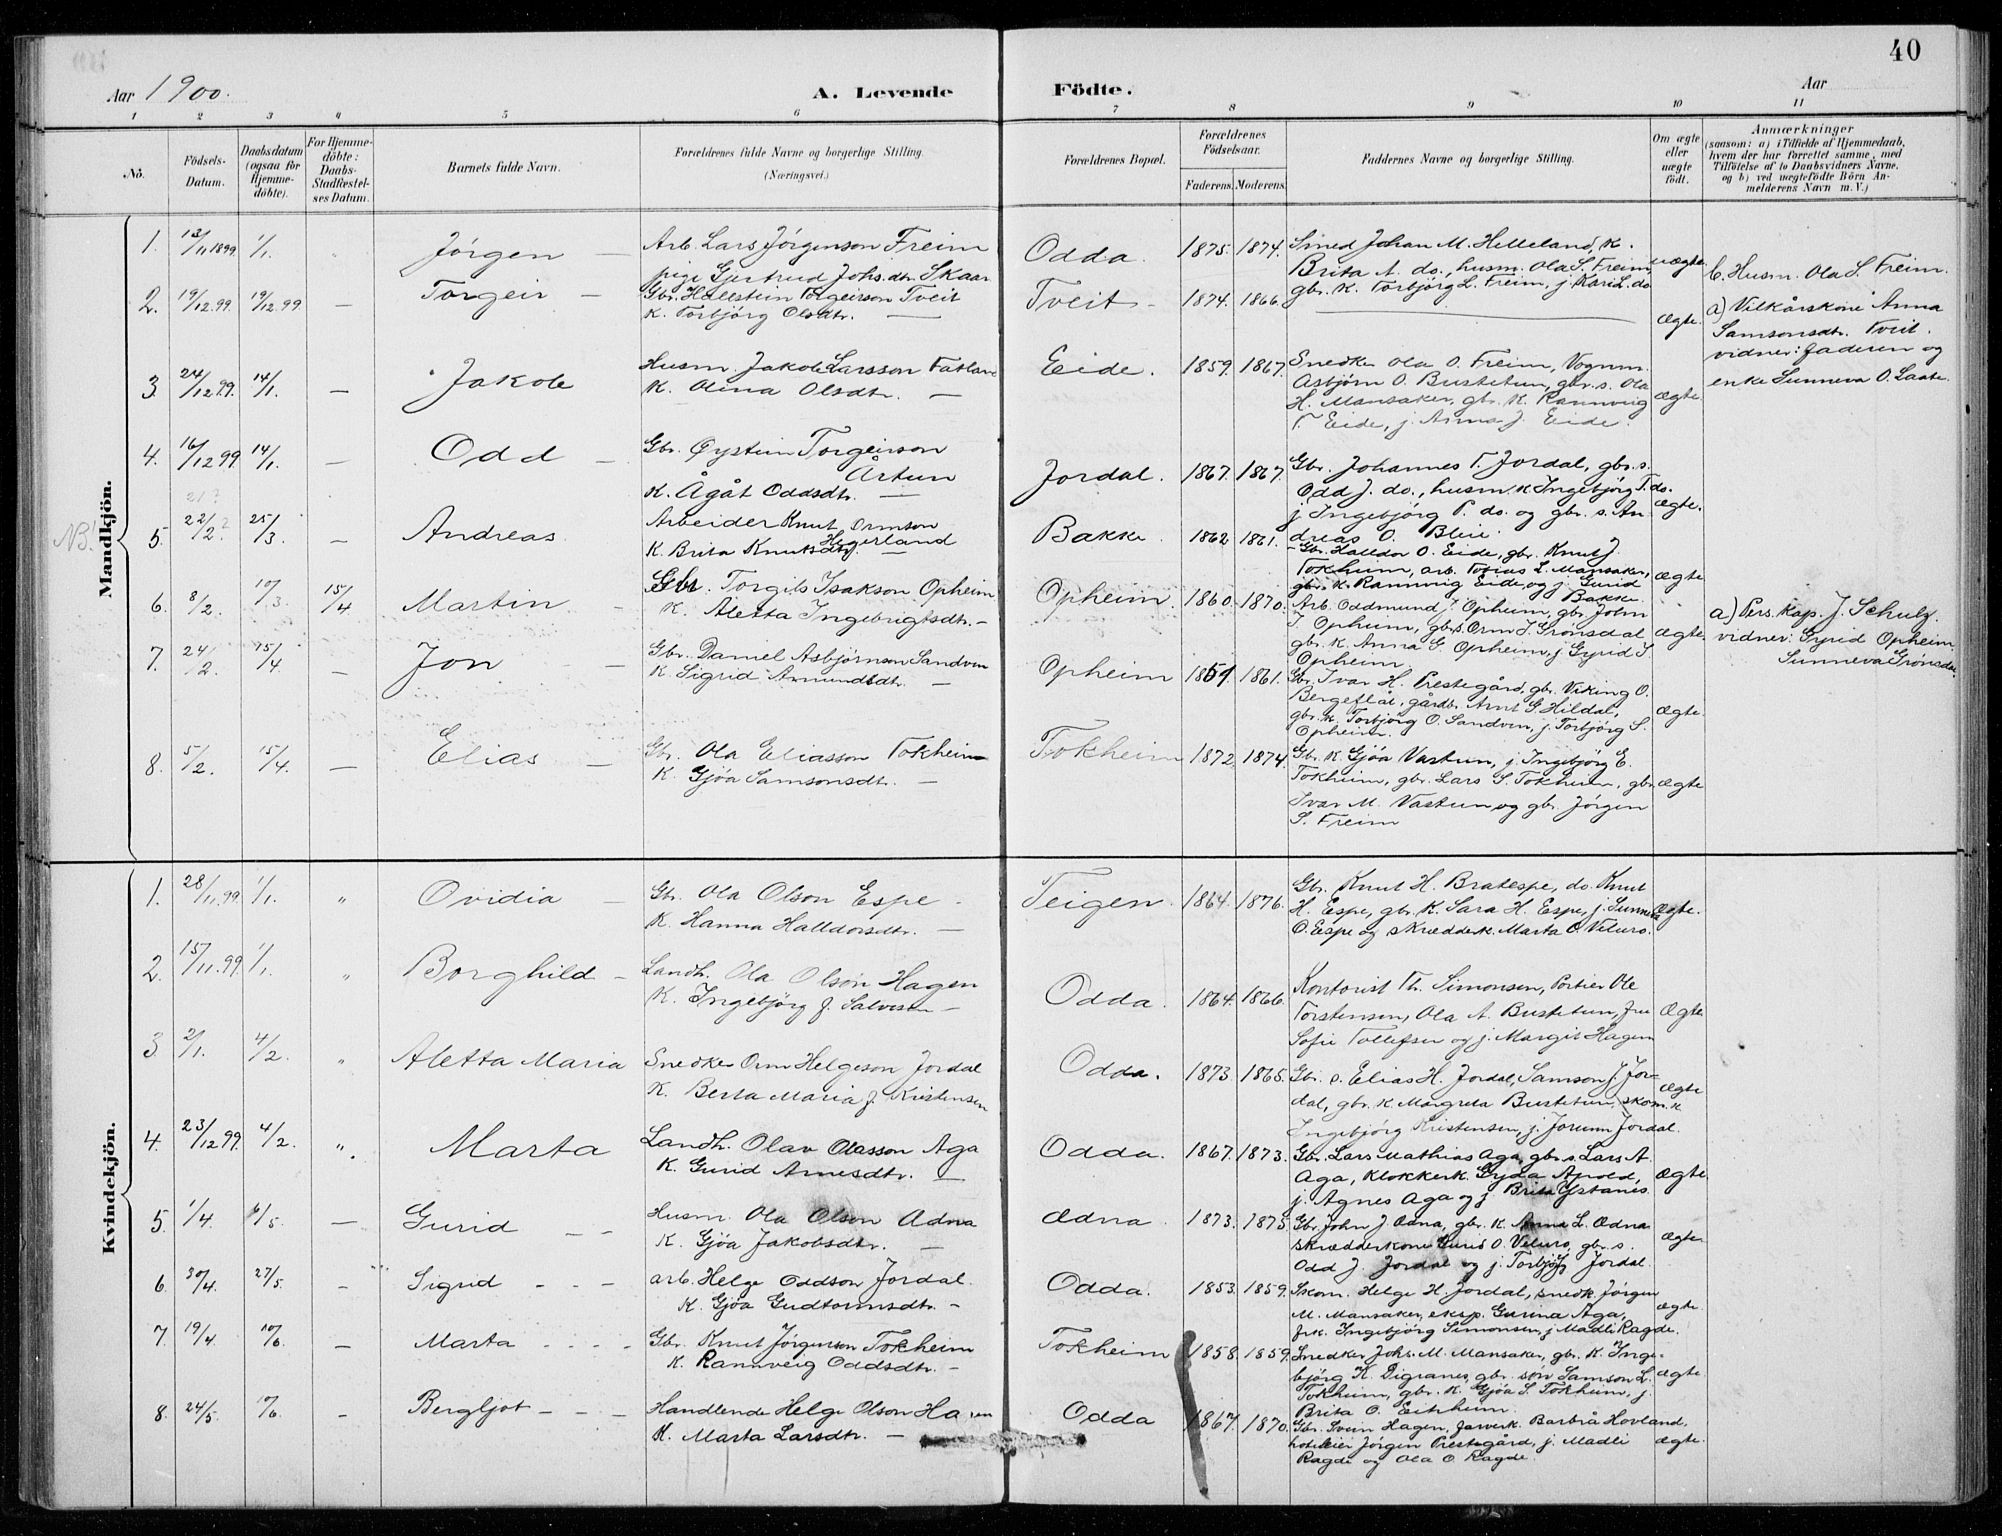 40
Aar 1900. A. Levende Födte. Aar
1 2 3 4 5 6 7 8 9 10 11
No. Födsels-Datum. Daabsdatum (ogsaa for Hjemmedöbte). For Hjemmedöbte: Daabs-Stadfæstelses Datum. Barnets fulde Navn. Forældrenes fulde Navne og borgerlige Stilling. (Næringsvei.) Forældrenes Bopæl. Forældrenes Födselsaar. Faderens. Moderens. Faddernes Navne og borgerlige Stilling. Om ægte eller uægte födt. Anmærkninger (saasom: a) i Tilfælde af Hjemmedaab, hvem der har forrettet samme, med Tilföielse af to Daabsvidners Navne, og b) ved uægtefödte Börn Anmelderens Navn m. V.)
Mandkjön.
1. 13/11 1899 1/1. " Jörgen — Arb. Lars Jörgenson Freim Odda. 1875. 1874. Smed Johan M. Helleland, K.
pige Gjertrud Johs.dtr. Skaar Brita A. do., husm. Ola S. Freim, uægte b. Husm. Ola S. Freim.
2. 19/12.99. 19/12.99 — Torgeir — Gbr. Hallstein Torgeirson Tveit Tveit — 1874. 1866. gbr. K. Torbjörg L. Freim, j. Kari L. do
K. Torbjörg Olsdtr. — ægte. a) Vilkårskone Anna
Samsonsdtr. Tveit.
vidner: faderen og
enke Sunneva O. Laate.
3. 24/12 99. 14/1. — Jakob Husm. Jakob Larsson Fatland Eide. 1859. 1867. Snedker Ola O. Freim, Vognm.
K. Olina Olsdtr. — Asbjörn O. Bustetun, gbr. s. Ola
H. Mansaker, gbr. K. Rannveig ægte.
T. Eide, j. Anna J. Eide.
4. 16/12 99. 14/1. — Odd — Gbr. Öystein Torgeirson
Årtun Jordal. 1867. 1867. Gbr. Johannes T. Jordal, gbr. s.
K. Ågåt Oddsdtr. — Odd J. do., husm. K. Ingebjörg T. do.
j. Ingebjörg P. do. og gbr. s. An ægte.
NB! 21?
5. 22/2? 25/3. — Andreas Arbeider Knut Ormson Bakke. 1862 1861. dreas O. Bleie.
Hegerland
K. Brita Knutsdtr. — Gbr. Halldor O. Eide, gbr. Knut J.
Tokheim, arb. Tobias L. Mansaker, ægte
gbr. K. Rannveig Eide, og j. Gurid
Bakke.
6. 8/2. 10/3. 15/4 Martin — Gbr. Torgils Isakson Opheim Opheim. 1860. 1870. Arb. Oddmund J. Opheim, gbr. John
K. Aletta Ingebrigtsdtr. — J. Opheim, gbr. s. Orm J. Grönsdal ægte a) Pers. kap. J. Schulz.
gbr. K. Anna S. Opheim, j. Gyrid S. vidner: Gyrid Opheim
Opheim. Sunneva Grönsdal.
7. 24/2. 15/4 — Jon — Gbr. Daniel Asbjörnson Sandven Opheim 1851. 1861. Gbr. Ivar H. Prestegård, gbr. Viking O.
K. Sigrid Amundsdtr. — Bergeflåt, gårdb. Arnt G. Hildal, ægte
gbr. K. Torbjörg O. Sandven, j. Torbjörg S.
Opheim.
8. 5/2. 15/4. — Elias — Gbr. Ola Eliasson Tokheim Tokheim 1872. 1874. Gbr. K. Gjöa Vastun, j. Ingebjörg E.
K. Gjöa Samsonsdtr. — Tokheim, gbr. Lars S. Tokheim, gbr. ægte
Ivar M. Vastun og gbr. Jörgen
S. Freim
Kvindekjön.
1. 28/11.99. 1/1. " Ovidia — Gbr. Ola Olson Espe. Teigen. 1864. 1876. Gbr. Knut H. Bratespe, do. Knut
K. Hanna Halldorsdtr. — H. Espe, gbr. K. Sara H. Espe, j. Sunneva ægte.
O. Espe og skrædderk. Marta O. Veluro.
2. 15/11.99. 1/1. " Borghild — Landh. Ola Olson Hagen Odda. 1864. 1866. Kontorist Th. Simonsen, Portier Ole
K. Ingebjörg f. Salvesen — Torstensen, Ola A. Bustetun, fru ægte
Sofie Tollefsen og j. Margit Hagen
3. 2/1. 4/2. " Aletta Maria Snedker Orm Helgeson Jordal Odda. 1873. 1865. Gbr. s. Elias H. Jordal, Samson J. Jor-
K. Berta Maria f. Kristensen dal, gbr. K. Margreta Bustetun, skom. K ægte
Ingebjörg Kristensen, j. Jorunn Jordal.
4. 23/12 99. 4/2. ". Marta Landh. Olav Olasson Aga Odda. 1867. 1873. Gbr. Lars Mathias Aga, gbr. s. Lars A.
K. Gurid Arnesdtr. — Aga, Klokkerk. Gyda Apold, ægte
j. Agnes Aga og j. Brita Ystanes.
5. 1/4. 6/5. — Gurid — — Husm. Ola Olson Ædna Ædna. 1873. 1875. Gbr. John J. Ædna, gbr. K. Anna L. Ædna
K. Gjöa Jakobsdtr. — skrædderkone Gurid O. Veluro, gbr. s. ægte
Odd J. Jordal og j. Torbjörg Jordal.
6. 30/4. 27/5. — Sigrid - - - arb. Helge Oddson Jordal. Odda. 1853. 1859. Skom. Helge H. Jordal, snedk. Jörgen
K. Gjöa Gudtormsdtr. — M. Mansaker, eksp. Gurina Aga, ægte
frk. Ingebjörg Simonsen, j. Madli Ragde.
7. 19/4 10/6. — Marta - - - - Gbr. Knut Jörgenson Tokheim Tokheim 1858. 1859. Snedker Johs. M. Mansaker, gbr. K. Inge-
K. Rannveig Oddsdtr. — björg K. Digranes, gbr. sön Samson L. ægte
Tokheim, gbr. K. Gjöa S. Tokheim, j.
Brita O. Eitrheim.
8. 24/5. 10/6. — Bergljot - - - Handlende Helge Olson Hagen Odda 1867. 1870. Gbr. Svein Hagen, farverk. Barbrå Hovland,
K. Marta Larsdtr. — hoteleier Jörgen Prestegård, j. Madli ægte.
Ragde og Ola O. Ragde.